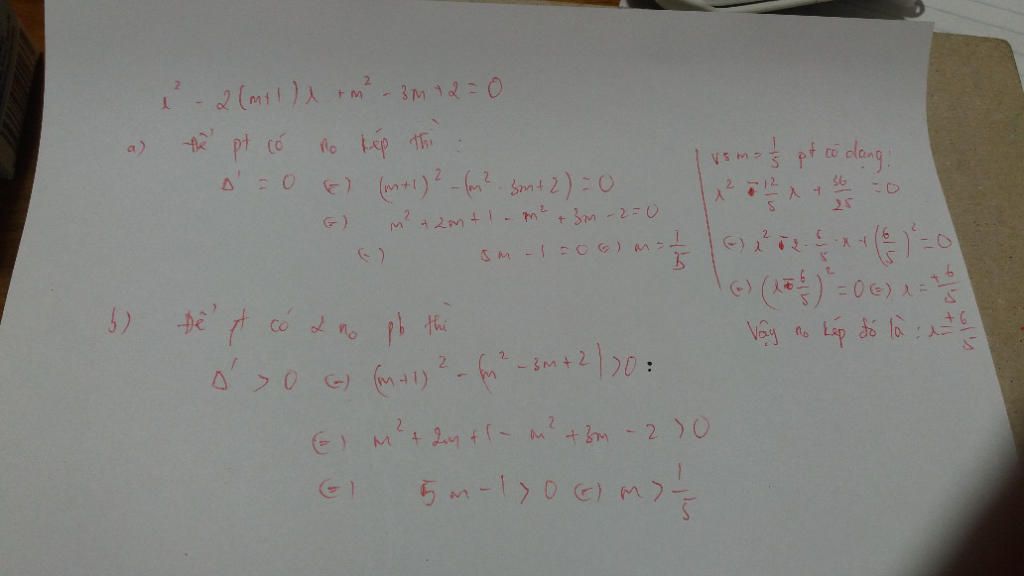 x² - 2(m+1)x + m² - 3m + 2 = 0
a) Để pt có no kép thì:
Δ' = 0 (=) (m+1)² - (m² - 3m+2) = 0
(=) m² + 2m + 1 - m² + 3m - 2 = 0
(=) 5m - 1 = 0 (=) m = 1/5
Vs m = 1/5 pt có dạng:
x² - 12/5 x + 36/25 = 0
(=) x² - 2 . 6/5 . x + (6/5)² = 0
(=) (x - 6/5)² = 0 (=) x = + 6/5
Vậy no kép đó là : x = + 6/5
b) Để pt có 2 no pb thì
Δ' > 0 (=) (m+1)² - (m² - 3m+2) > 0 :
(=) m² + 2m + 1 - m² + 3m - 2 > 0
(=) 5m - 1 > 0 (=) m > 1/5